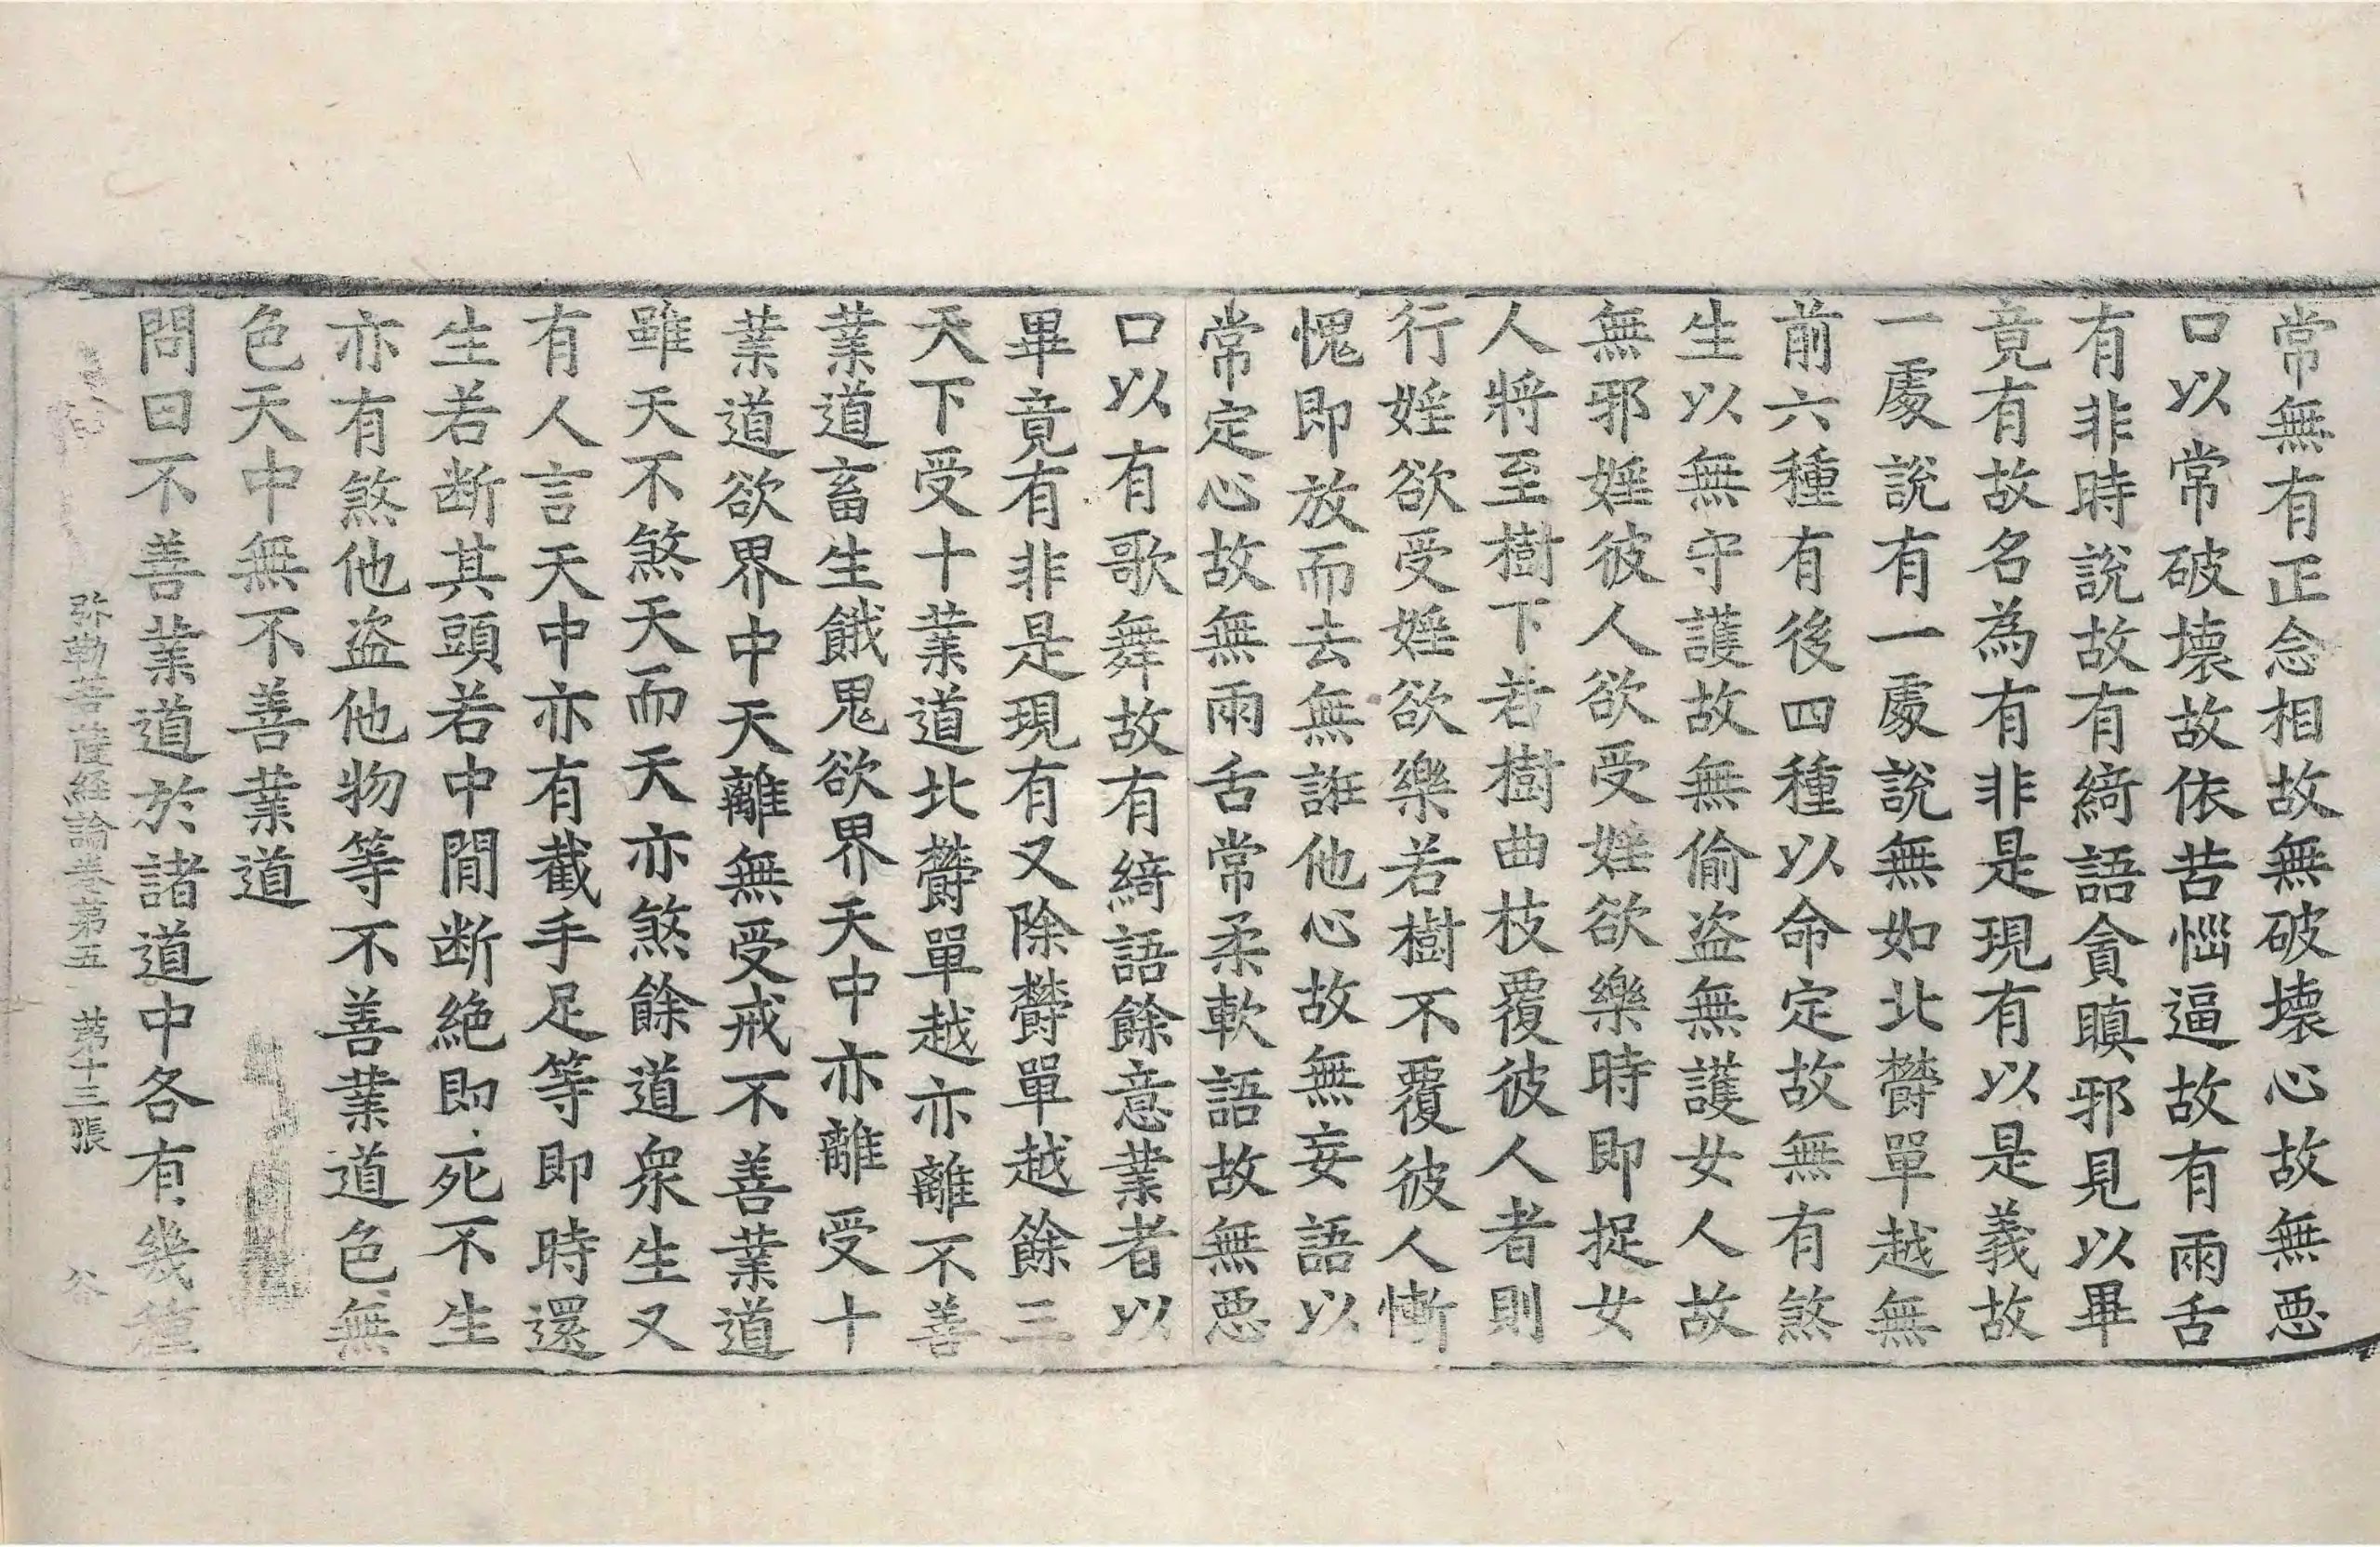 常無有正念相故無破壞心故無惡
口以常破壞故依苦惱逼故有兩舌
有非時說故有綺語貪瞋邪見以畢
竟有故名為有非是現有以是義故
一處說有一處說無如北欝單越無
前六種有後四種以命定故無有煞
生以無守護故無偷盜無護女人故
無邪婬彼人欲受婬欲樂時即捉女
人將至樹下若樹曲枝覆彼人者則
行婬欲受婬欲樂若樹不覆彼人慚
愧即放而去無誑他心故無妄語以
常定心故無兩舌常柔軟語故無惡
口以有歌舞故有綺語餘意業者以
畢竟有非是現有又除欝單越餘三
天下受十業道北欝單越亦離不善
業道畜生餓鬼欲界天中亦離受十
業道欲界中天離無受戒不善業道
雖天不煞天而天亦煞餘道衆生又
有人言天中亦有截手足等即時還
生若断其頭若中間断絶即死不生
亦有煞他盜他物等不善業道色無
色天中無不善業道
問曰不善業道於諸道中各有幾種
弥勒菩薩経論卷第五 第十三張 谷